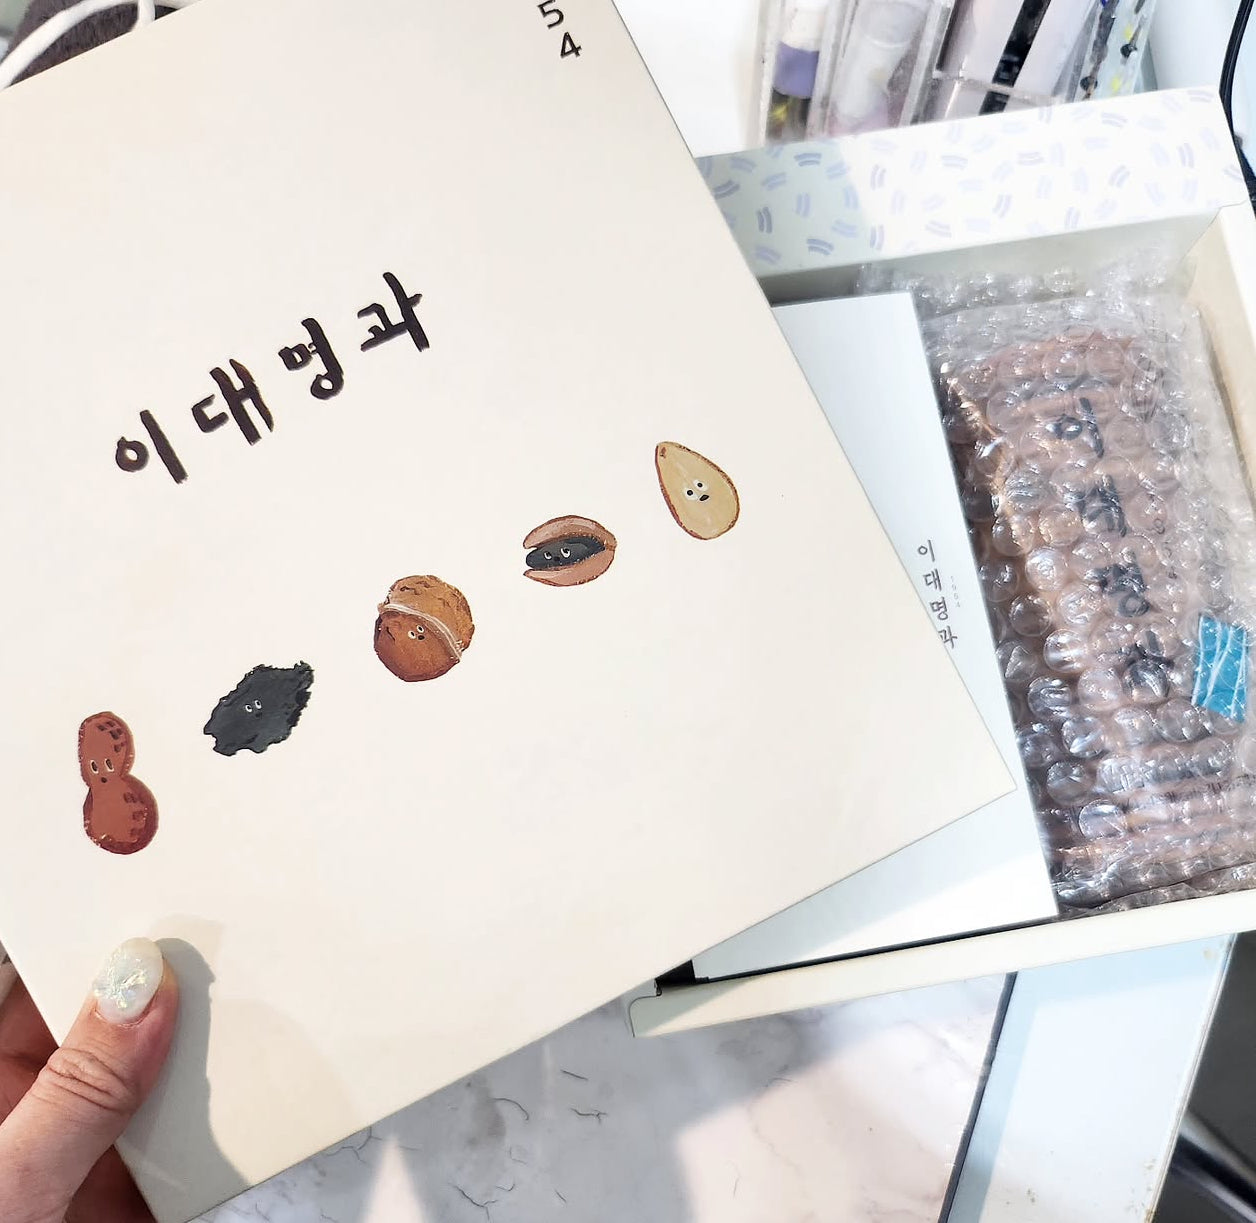 5
4
이대명과
이대명과
1954
이대명과